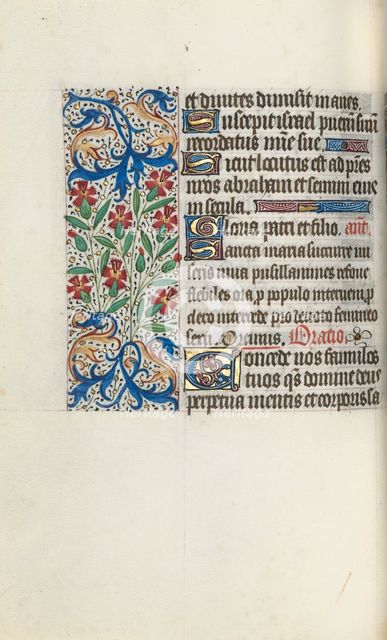 et divites dimisit inanes.
Suscepit israel puerum suum
recordatus mie sue
Sicut locutus est ad pres
nros abraham et semini eius
in secula.
Gloria patri et filio. ant.
Sancta maria succurre mi
seris iuva pusillanimes refove
flebiles ora p populo interveni p
clero intercede pro devoto femineo
sexu. Oremus. Oratio
Concede nos famulos
tuos qs domine deus
perpetua mentis et corporis sa
heritage